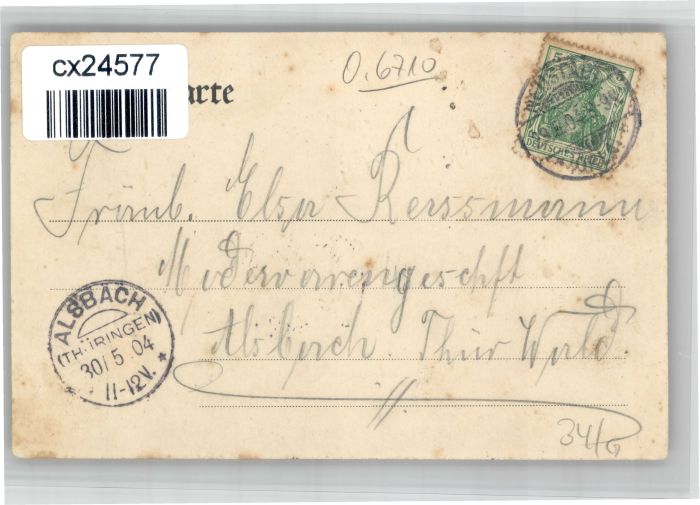 cx24577
arte
O. 6710
5
DEUTSCHES REICH
Fräul. Elsa
Modewarengeschft
Alsbach. Thür Wald.
ALSBACH
(THÜRINGEN)
30/5 04
11-12V.
34/G